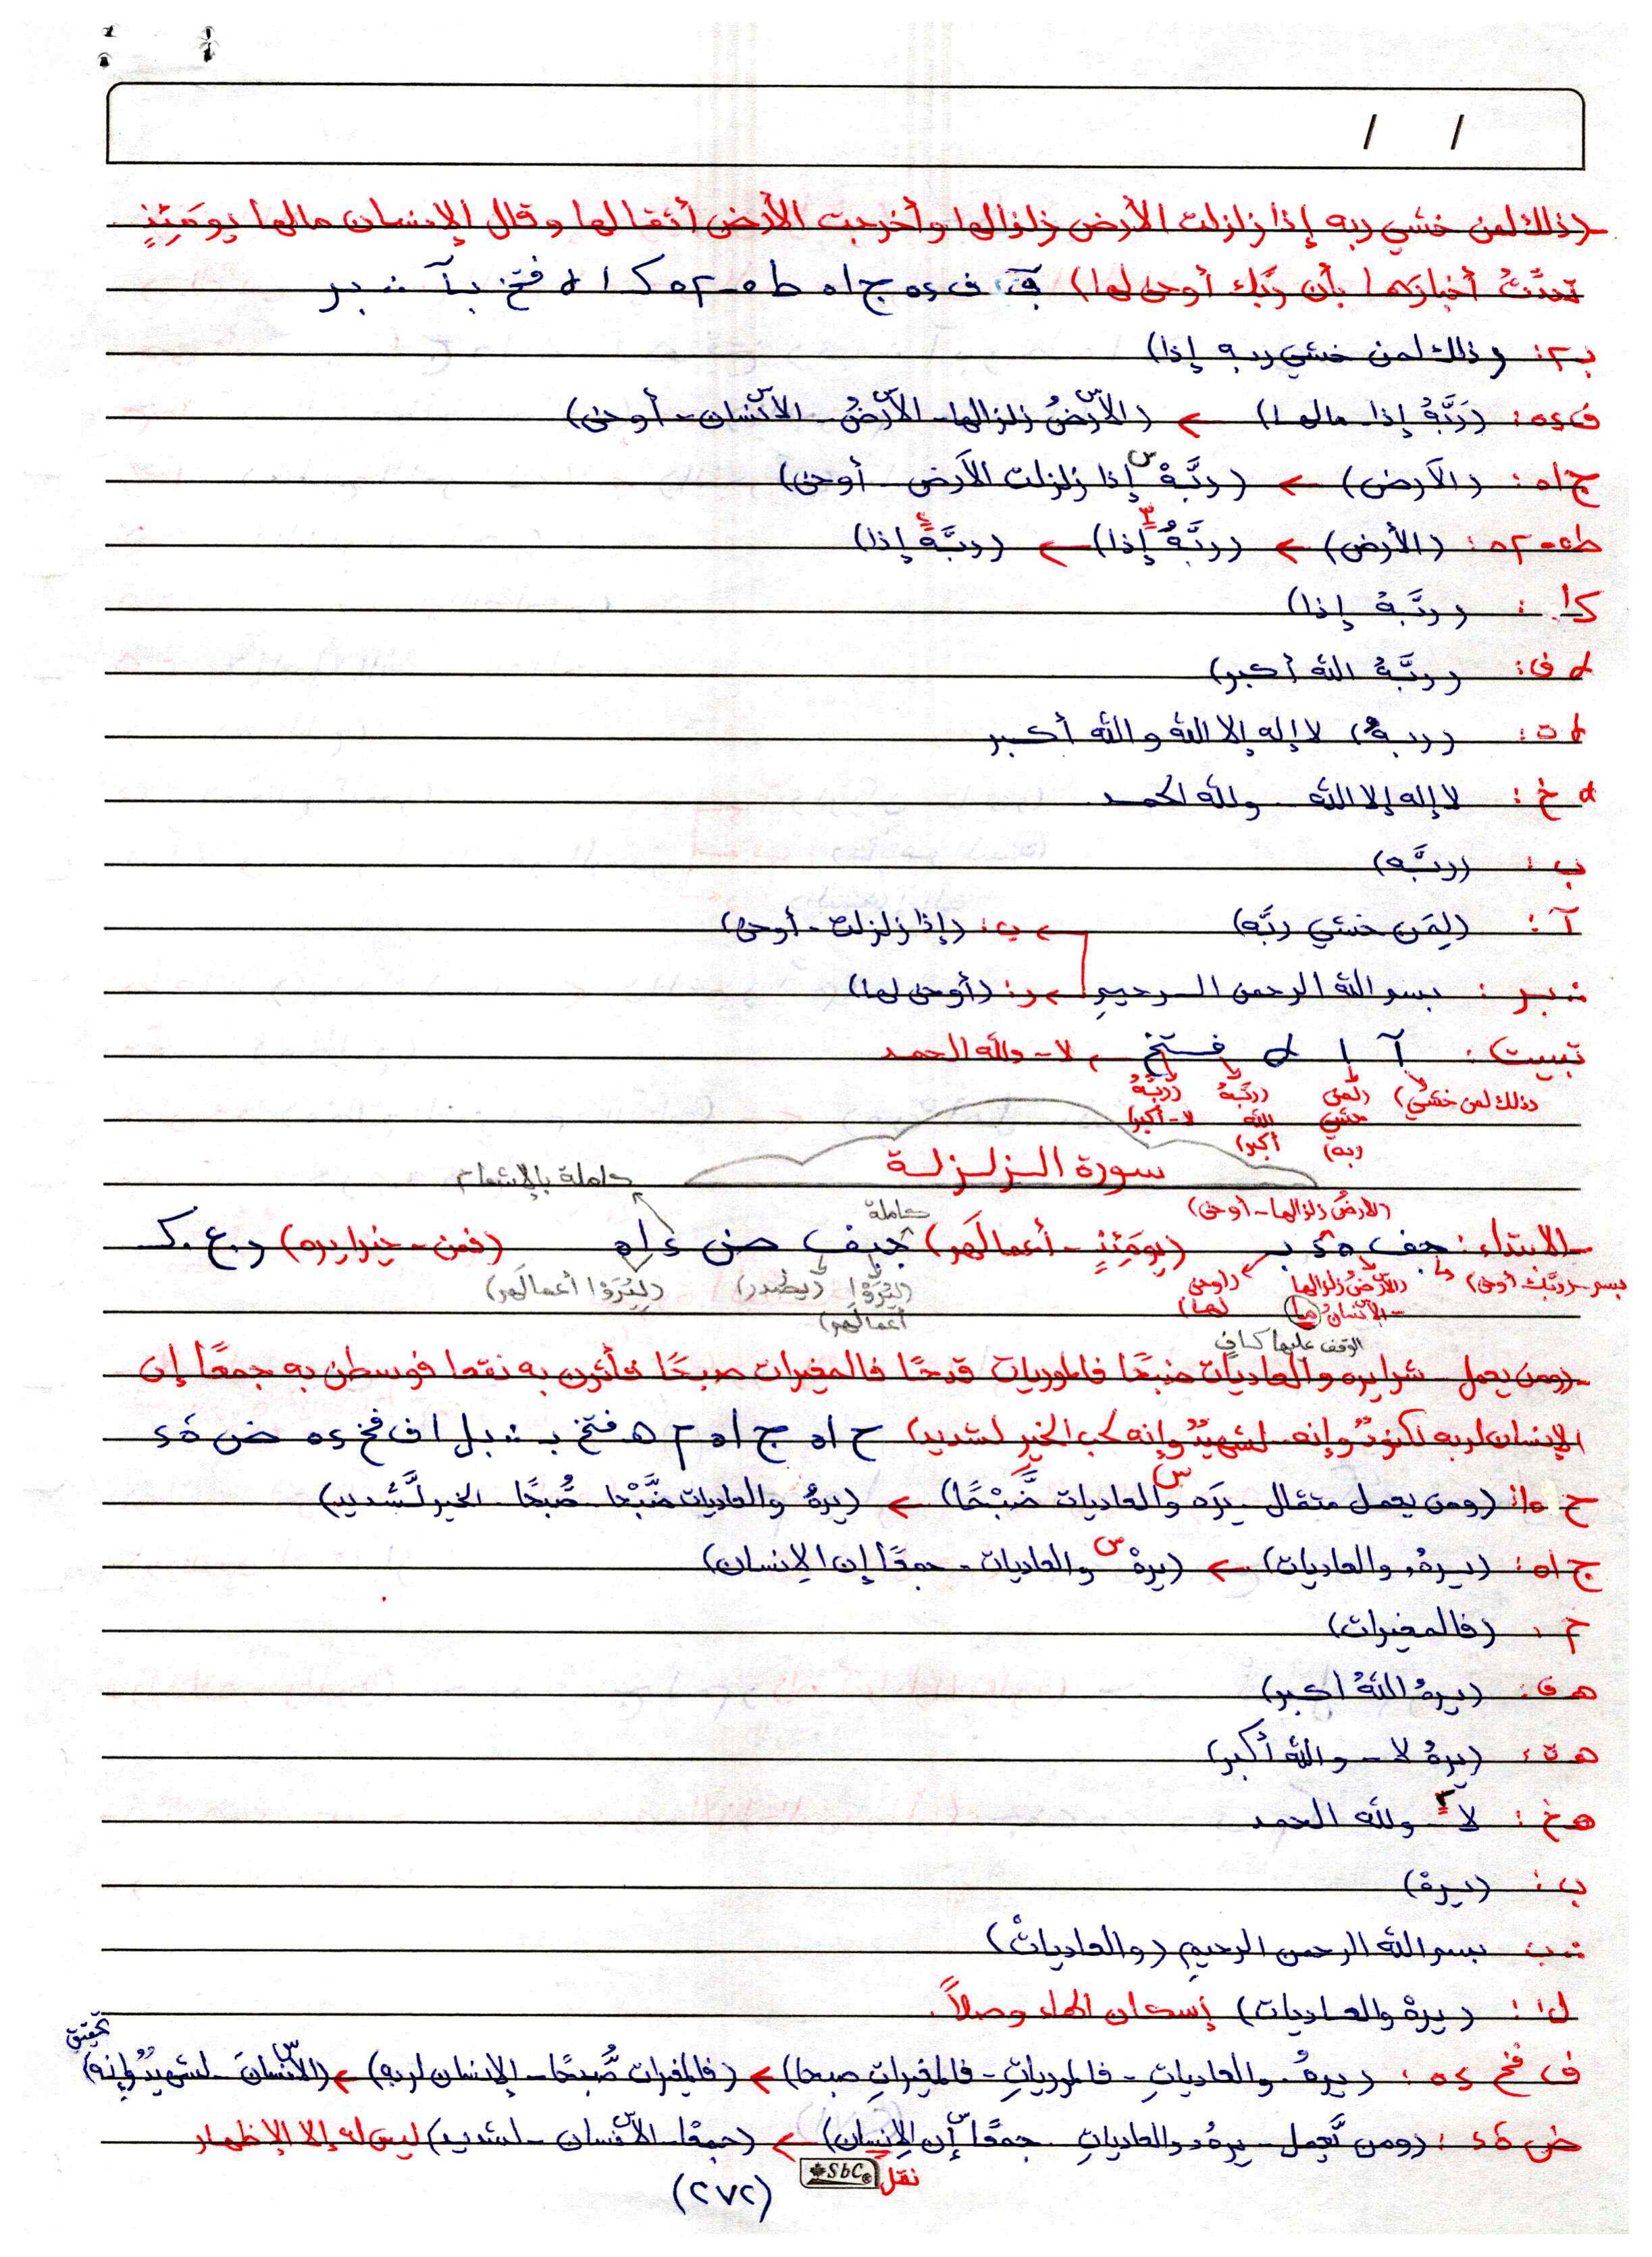 / /
(ذلك لمن خشي ربه إذا زلزلت الأرض زلزالها وأخرجت الأرض أثقالها وقال الإنسان مالها يومَئِذٍ
تحدِّثُ أخبارَها بأن ربَّك أوحى لها) ف ٥٤ ج ا٥ ط ٥-٥٢ ك ا d فتخ ب آ بر
ب٢: (ذلك لمن خشي ربه إذا)
ف٥٤: (رَبَّهُ إذا - مالها) ← (الأرْضُ زلزالها - الأرْضُ - الانْسَان - أوحى)
ج ا٥: (الأرض) ← (ربَّهْ س إذا زلزلت الأرض - أوحى)
ط٥-٥٢: (الأرض) ← (ربَّهُ إذا) ← (ربَّهُ إذا)
ك ا: (ربَّهُ إذا)
d ف: (ربَّهُ الله أكبر)
d ت: (ربهُ) لا إله إلا الله والله أكبر
d خ: لا إله إلا الله - ولله الحمد
ب: (ربَّه)
آ: (لِمَن خشي ربَّه) ← ب: (إذا زلزلت - أوحى)
بر: بسم الله الرحمن الرحيم ← ر: (أوحى لها)
تبييت: آ ا d فتخ ← لا - ولله الحمد
(ذلك لمن خشي) (لمن خشي ربه) (ربَّهُ الله أكبر) (ربَّهُ لا - أكبر)
سورة الزلزلة
حاملة بالإشمام
حاملة
(الأرضُ زلزالها - أوحى)
الابتداء: جف ٥٤ ب (يومَئِذٍ - أعمالَهم) جيف ض ٤ ا٥ (فمن - خيرا يره) ر. ع. ك
بسم - ربَّك أوحى) (الأرْضُ زلزالها (أوحى لها) (لِيُرَوْا أعمالهم) (يصْدر) (لِيُرَوْا أعمالَهم)
- الانْسَانُ مالها)
الوقف عليها كافي
(ومن يعمل - شرا يره والعاديات ضبحًا فالموريات قدحًا فالمغيرات صبحًا فأثرن به نقعا فوسطن به جمعًا إن
الإنسان لربه لكنودٌ وإنه - لشهيدٌ وإنه لحب الخير لشديد) ح ا٥ ج ا٥ م هـ فتخ ب بل ا ف فخ ٥٤ ض ٤٥
ح ا٥: (ومن يعمل مثقال - يرَه س والعاديات ضَّبْحًا) ← (يرهُ والعاديات ضَّبْحا - صُّبحًا - الخير لَّشديد)
ج ا٥: (يرهُ والعاديات) ← (يرهْ س والعاديات - جمعًا إن الإنسان)
م: (فالمغيرات)
هـ ف: (يرهُ اللهُ أكبر)
هـ ت: (يرهُ لا - والله أكبر)
هـ خ: لا - ولله الحمد
ب: (يرهْ)
ب بسم الله الرحمن الرحيم (والعادياتْ)
ل ا: (يرهْ والعاديات) إسكان الهاء وصلاً.
ف فخ ٥٤: (يرهُ والعادياتِ - فالمورياتِ - فالمغيراتِ صبحا) ← (فالمغيرات صُّبحًا - الإنسان لربه) ← (الانْسَان - لشهيدٌ وإنه) تحقيق
ض ٤٥: (ومن يَّعمل - يرهُ والعادياتِ جمعًا إن الإنسان) ← (جمعًا - الانْسان - لشديد) ليس له إلا الإظهار
نقل
SbC
(٢٧٢)